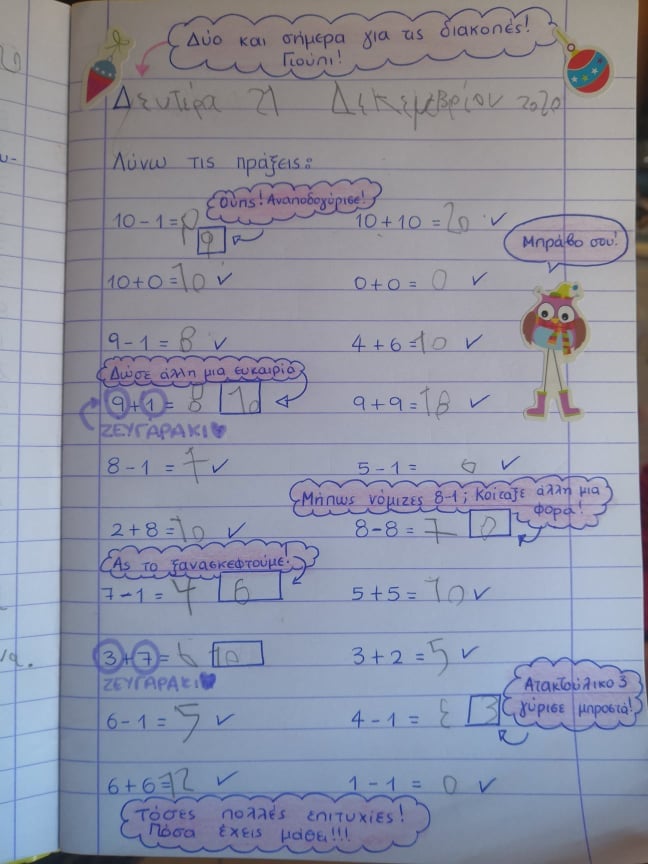 Δύο και σήμερα για τις διακοπές!
Γιούπι!
Δευτέρα 21 Δεκεμβρίου 2020
Λύνω τις πράξεις:
Ούπς! Αναποδογύρισε!
10-1=9 10+10=20 ✓
9
Μπράβο σου!
10+0=10 ✓ 0+0=0 ✓
9-1=8 ✓ 4+6=10 ✓
Δώσε άλλη μια ευκαιρία
9+1=8 10 9+9=18 ✓
ΖΕΥΓΑΡΑΚΙ
8-1=7 ✓ 5-1= ✓
Μήπως νόμιζες 8-1; Κοίταξε άλλη μια
φορά!
2+8=10 ✓ 8-8=7 0
Ας το ξανασκεφτούμε!
7-1=4 6 5+5=10 ✓
3+7=6 10 3+2=5 ✓
ΖΕΥΓΑΡΑΚΙ
Ατακτούλικο 3
γύρισε μπροστά!
6-1=5 ✓ 4-1=ε 3
6+6=12 ✓ 1-1=0 ✓
Τόσες πολλές επιτυχίες!
Πόσα έχεις μάθει!!!